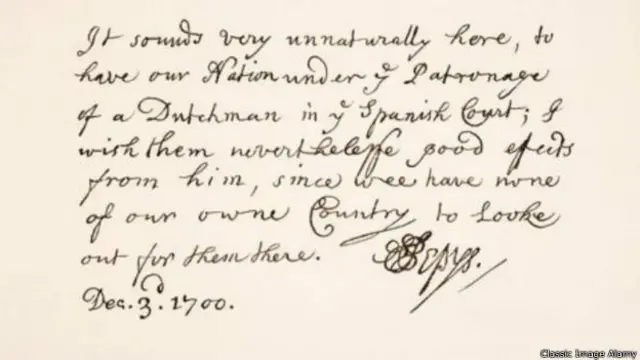 It sounds very unnaturally here, to
have our Nation under yͤ Patronage
of a Dutchman in yͤ Spanish Court; I
wish them neverthelesse good effects
from him, since wee have none
of our owne Country to Looke
out for them there. SPepys.
Dec. 3ᵈ. 1700.
Classic Image Alamy